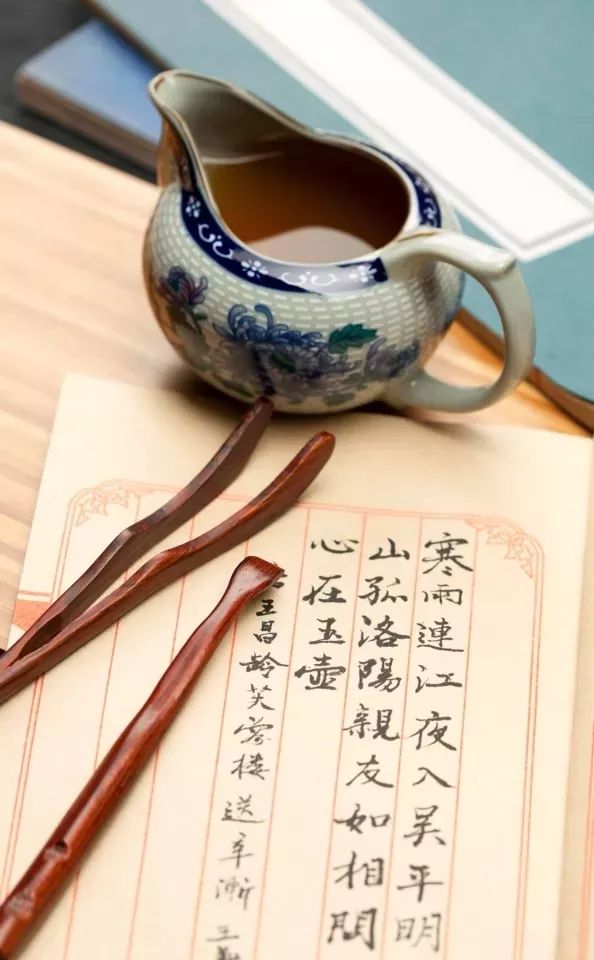 寒雨連江夜入吴平明
山孤洛陽親友如相問
心在玉壺
王昌龄芙蓉楼送辛漸